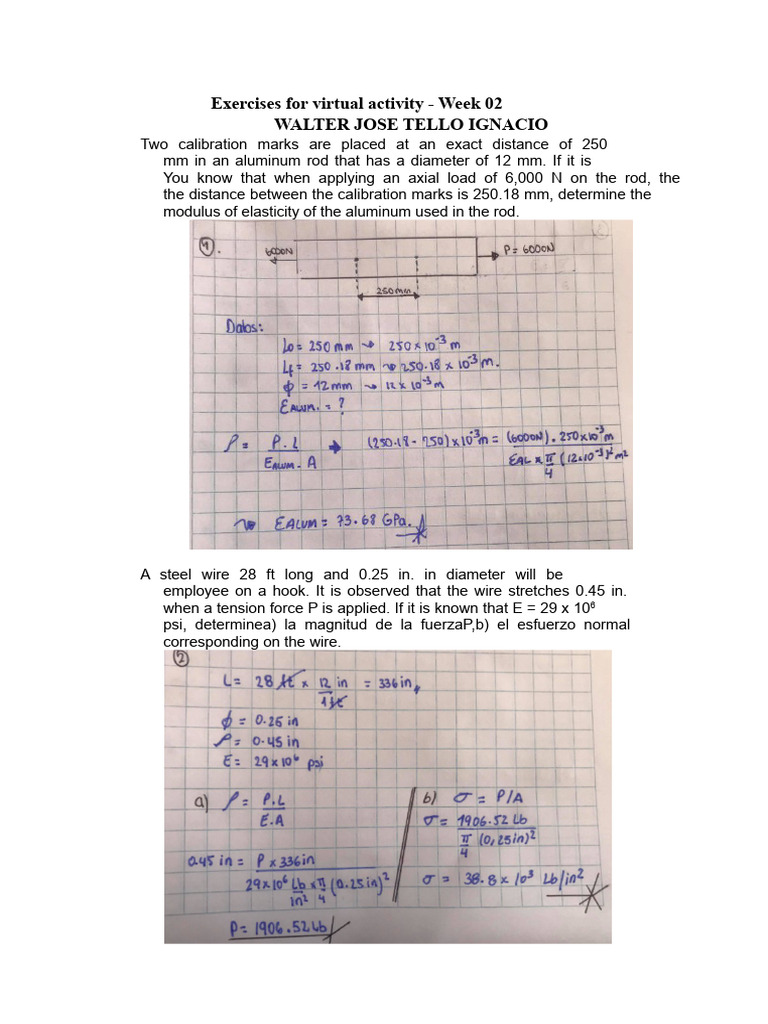 Exercises for virtual activity - Week 02
WALTER JOSE TELLO IGNACIO
Two calibration marks are placed at an exact distance of 250
mm in an aluminum rod that has a diameter of 12 mm. If it is
You know that when applying an axial load of 6,000 N on the rod, the
the distance between the calibration marks is 250.18 mm, determine the
modulus of elasticity of the aluminum used in the rod.
1.
6000N
P= 6000N
250mm
Datos:
Lo = 250 mm → 250 x 10⁻³ m
Lf = 250.18 mm → 250.18 x 10⁻³ m.
ϕ = 12mm → 12 x 10⁻³ m
EALUM. = ?
δ = P.L / EALUM. A → (250.18 - 250) x 10⁻³ m = (6000N) . 250x10⁻³ m / EAL x π/4 (12x10⁻³)² m²
→ EALUM = 73.68 GPa.
A steel wire 28 ft long and 0.25 in. in diameter will be
employee on a hook. It is observed that the wire stretches 0.45 in.
when a tension force P is applied. If it is known that E = 29 x 10⁶
psi, determinea) la magnitud de la fuerzaP,b) el esfuerzo normal
corresponding on the wire.
2
L= 28 ft x 12 in / 1 ft = 336 in
ϕ = 0.25 in
δ = 0.45 in
E = 29 x 10⁶ psi
a) δ = P.L / E.A
0.45 in = P x 336in / 29x10⁶ Lb/in² x π/4 (0.25 in)²
P= 1906.52 Lb
b) σ = P/A
σ = 1906.52 Lb / π/4 (0,25in)²
σ = 38.8 x 10³ Lb/in²